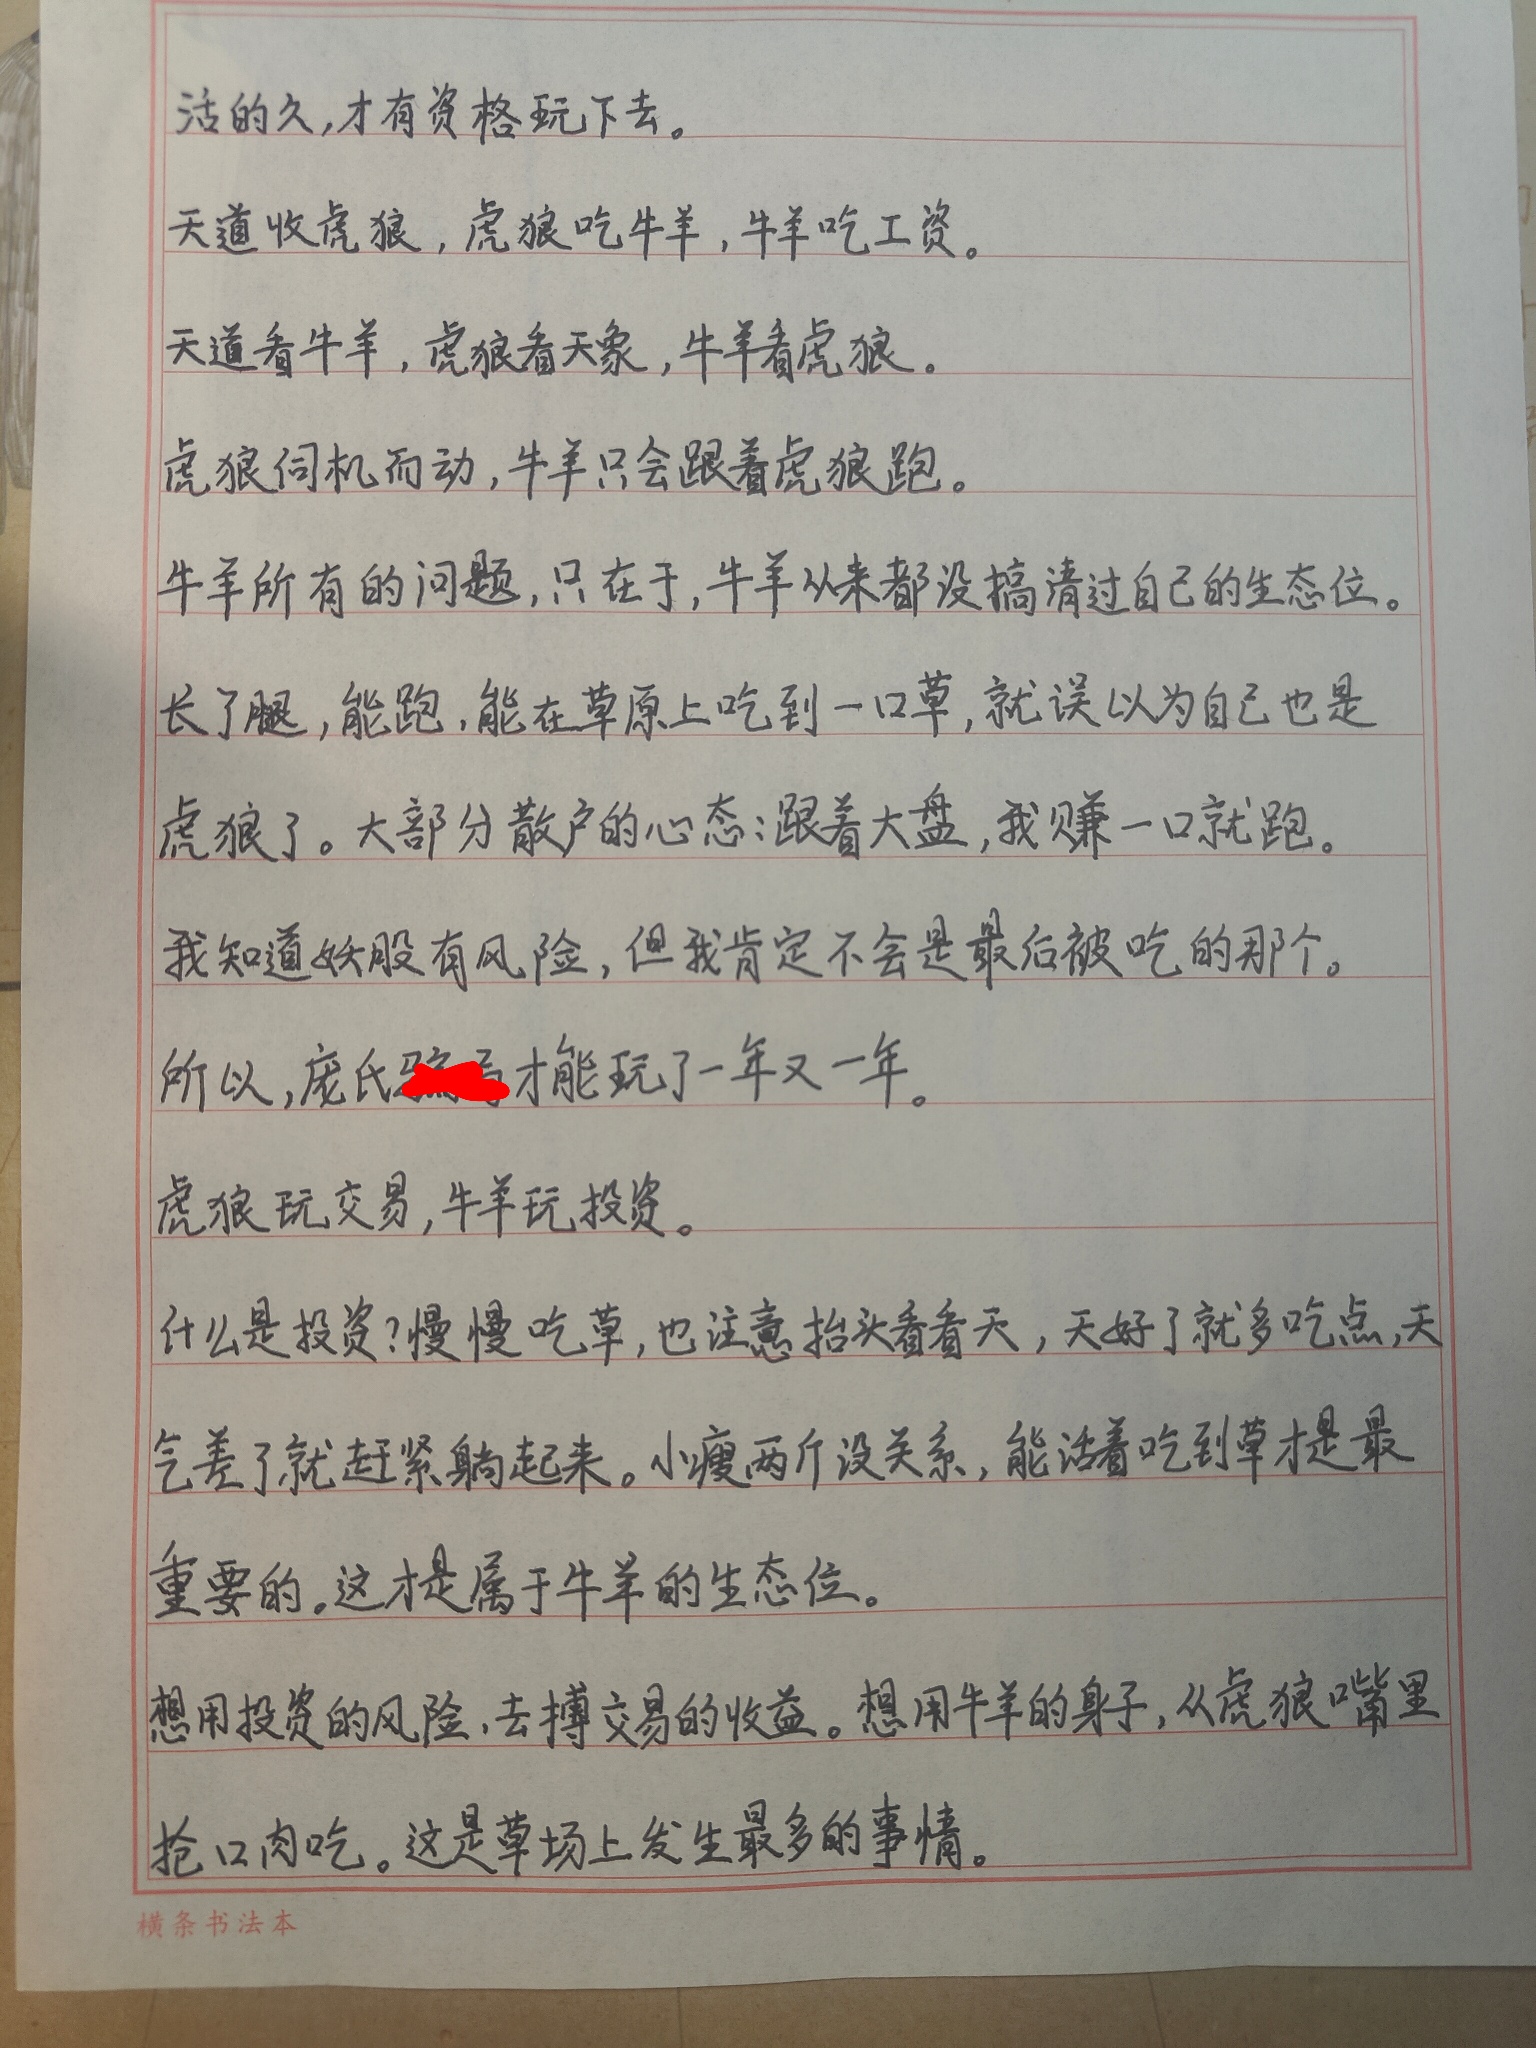 活的久,才有资格玩下去。
天道收虎狼,虎狼吃牛羊,牛羊吃工资。
天道看牛羊,虎狼看天象,牛羊看虎狼。
虎狼伺机而动,牛羊只会跟着虎狼跑。
牛羊所有的问题,只在于,牛羊从来都没搞清过自己的生态位。
长了腿,能跑,能在草原上吃到一口草,就误以为自己也是
虎狼了。大部分散户的心态:跟着大盘,我赚一口就跑。
我知道妖股有风险,但我肯定不会是最后被吃的那个。
所以,庞氏才能玩了一年又一年。
虎狼玩交易,牛羊玩投资。
什么是投资?慢慢吃草,也注意抬头看看天,天好了就多吃点,天
气差了就赶紧躺起来。小瘦两斤没关系,能活着吃到草才是最
重要的。这才是属于牛羊的生态位。
想用投资的风险,去搏交易的收益。想用牛羊的身子,从虎狼嘴里
抢口肉吃。这是草场上发生最多的事情。
横条书法本